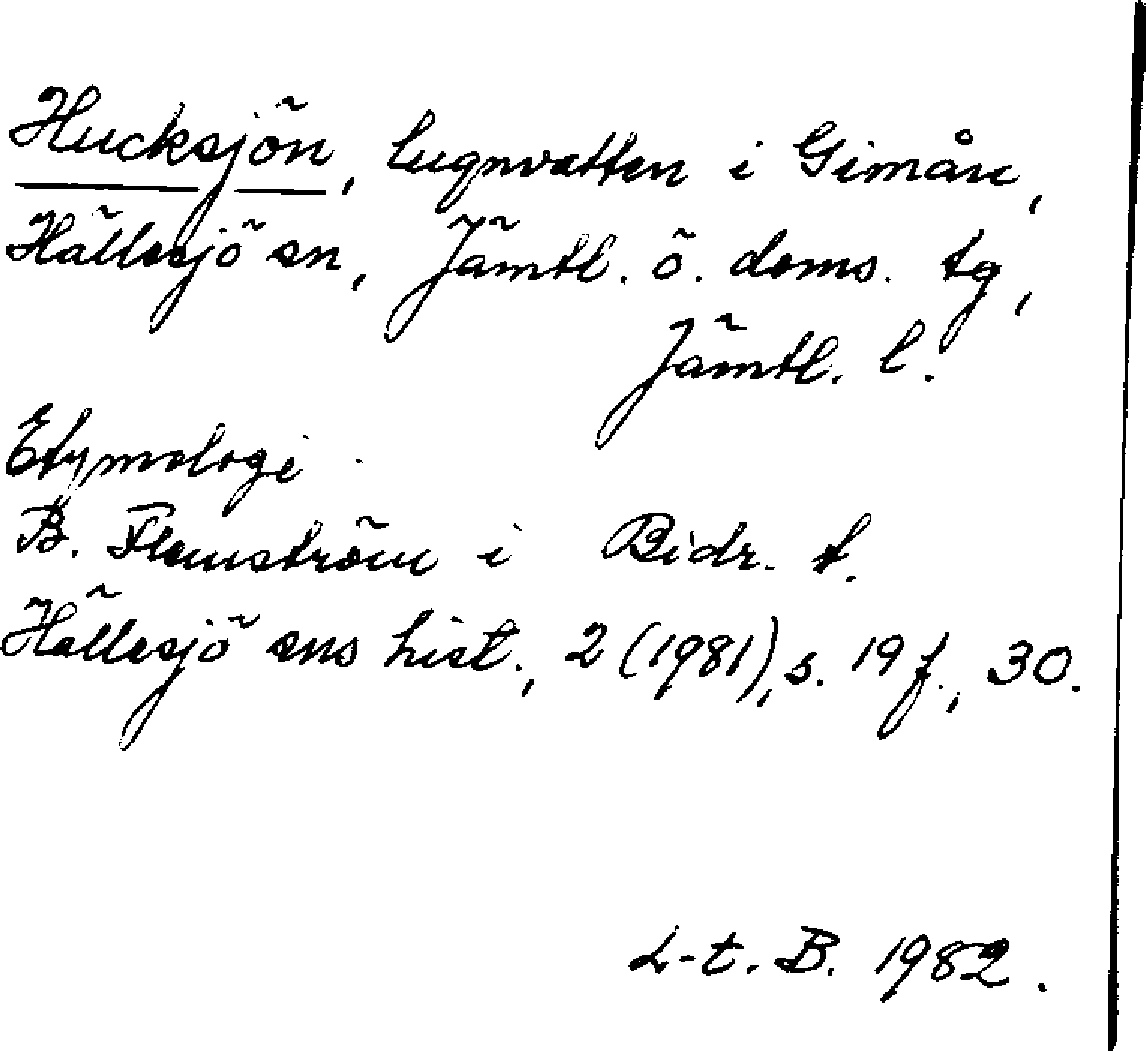 Hucksjön, lugnvatten i Gimån,
Hällesjö sn, Jämtl. ö. doms. tg,
Jämtl. l.
Etymologi
B. Flemström i Bidr. t.
Hällesjö sns hist., 2 (1981), s. 19 f., 30.
L-t. B. 1982.